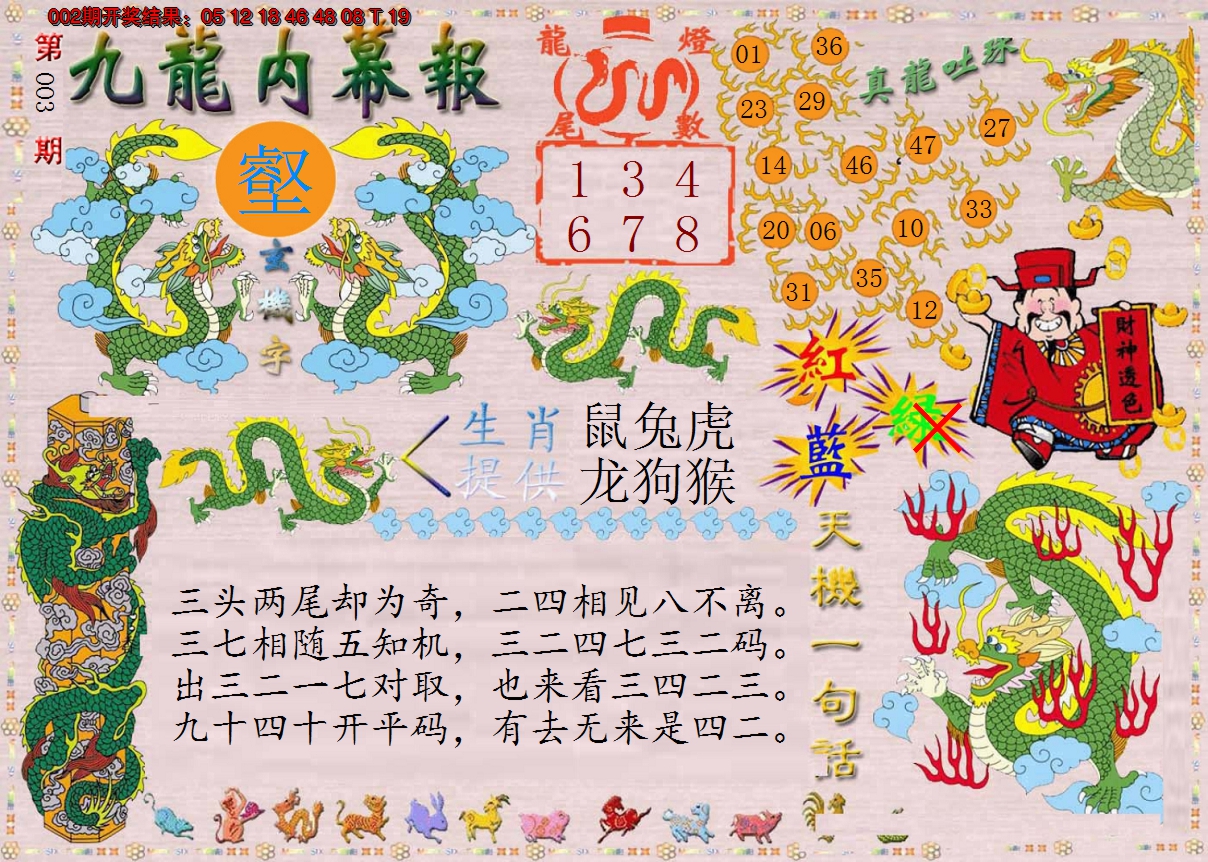 002期开奖结果：05 12 18 46 48 08 T 19
第003期
九龍内幕報
壑
玄機字
龍燈
尾數
1 3 4
6 7 8
真龍吐珠
01 36
23 29
14 46 47 27
20 06 10 33
31 35 12
財神透色
紅
綠
藍
生肖 鼠兔虎
提供 龙狗猴
天機一句话
三头两尾却为奇，二四相见八不离。
三七相随五知机，三二四七三二码。
出三二一七对取，也来看三四二三。
九十四十开平码，有去无来是四二。